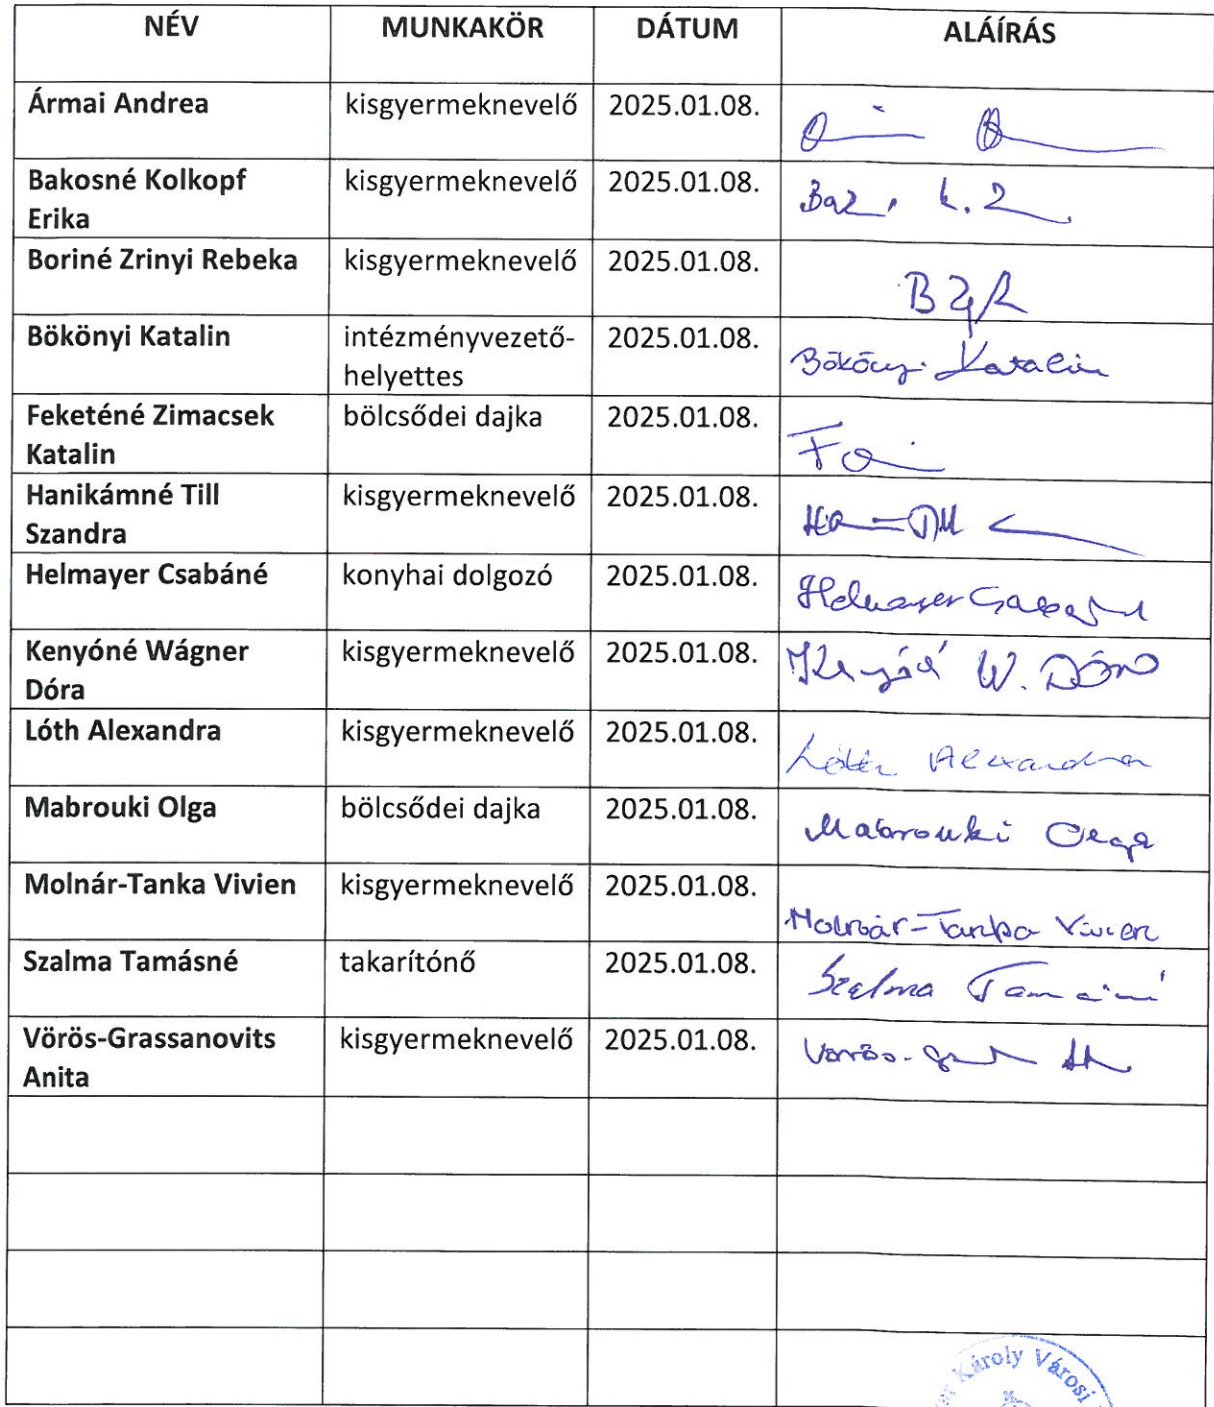 NÉV MUNKAKÖR DÁTUM ALÁÍRÁS
Ármai Andrea kisgyermeknevelő 2025.01.08.
Bakosné Kolkopf kisgyermeknevelő 2025.01.08.
Erika
Boriné Zrinyi Rebeka kisgyermeknevelő 2025.01.08. BZR
Bökönyi Katalin intézményvezető- 2025.01.08. Bökönyi Katalin
helyettes
Feketéné Zimacsek bölcsődei dajka 2025.01.08.
Katalin
Hanikámné Till kisgyermeknevelő 2025.01.08.
Szandra
Helmayer Csabáné konyhai dolgozó 2025.01.08. Helmayer Csabáné
Kenyóné Wágner kisgyermeknevelő 2025.01.08. W. Dóra
Dóra
Lóth Alexandra kisgyermeknevelő 2025.01.08. Lóth Alexandra
Mabrouki Olga bölcsődei dajka 2025.01.08. Mabrouki Olga
Molnár-Tanka Vivien kisgyermeknevelő 2025.01.08. Molnár-Tanka Vivien
Szalma Tamásné takarítónő 2025.01.08. Szalma Tamásné
Vörös-Grassanovits kisgyermeknevelő 2025.01.08. Vörös-
Anita
Károly Városi